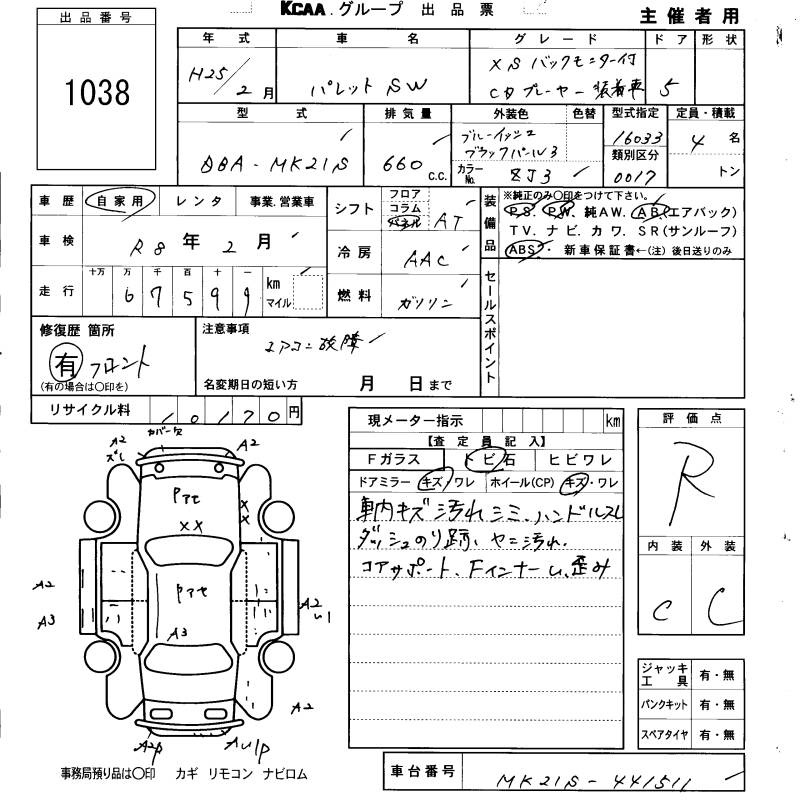 KCAA.グループ 出品票
主催者用
出品番号
1038
年式 車名 グレード ドア 形状
H25/2月 パレット SW XS バックモニター付 5
CDプレーヤー 装着車
型式 排気量 外装色 色替 型式指定 定員・積載
DBA-MK21S 660 c.c. ブルーイッシュ 16033 4 名
ブラックパール3 類別区分
カラーNo. ZJ3 0017 トン
車歴 自家用 レンタ 事業.営業車
車検 R8年 2月
走行 十万 万 千 百 十 一
67599 km
マイル
シフト フロア
コラム
パネル AT
冷房 AAC
燃料 ガソリン
装備品 ※純正のみ〇印をつけて下さい。
PS. PW. 純AW. AB(エアバック)
TV. ナビ. カワ. SR(サンルーフ)
ABS. 新車保証書←(注)後日送りのみ
セールスポイント
修復歴 箇所
有 フロント
(有の場合は〇印を)
注意事項
エアコン故障
名変期日の短い方 月 日まで
リサイクル料 10170円
現メーター指示 km
【査定員記入】
Fガラス トビ石 ヒビワレ
ドアミラー キズ/ワレ ホイール(CP) キズ・ワレ
車内キズ汚れシミ、ハンドルスレ
ダッシュのり跡、ヤニ汚れ、
コアサポート、Fインナーし、歪み
評価点
R
内装 外装
C C
ジャッキ
工具 有・無
パンクキット 有・無
スペアタイヤ 有・無
車台番号 MK21S-441511
A2
カバー欠
A2
ズレ
Pアセ
XX
X
X
Pアセ
A3
A2
A3
A2
A2
A2P
AU1P
事務局預り品は〇印 カギ リモコン ナビロム